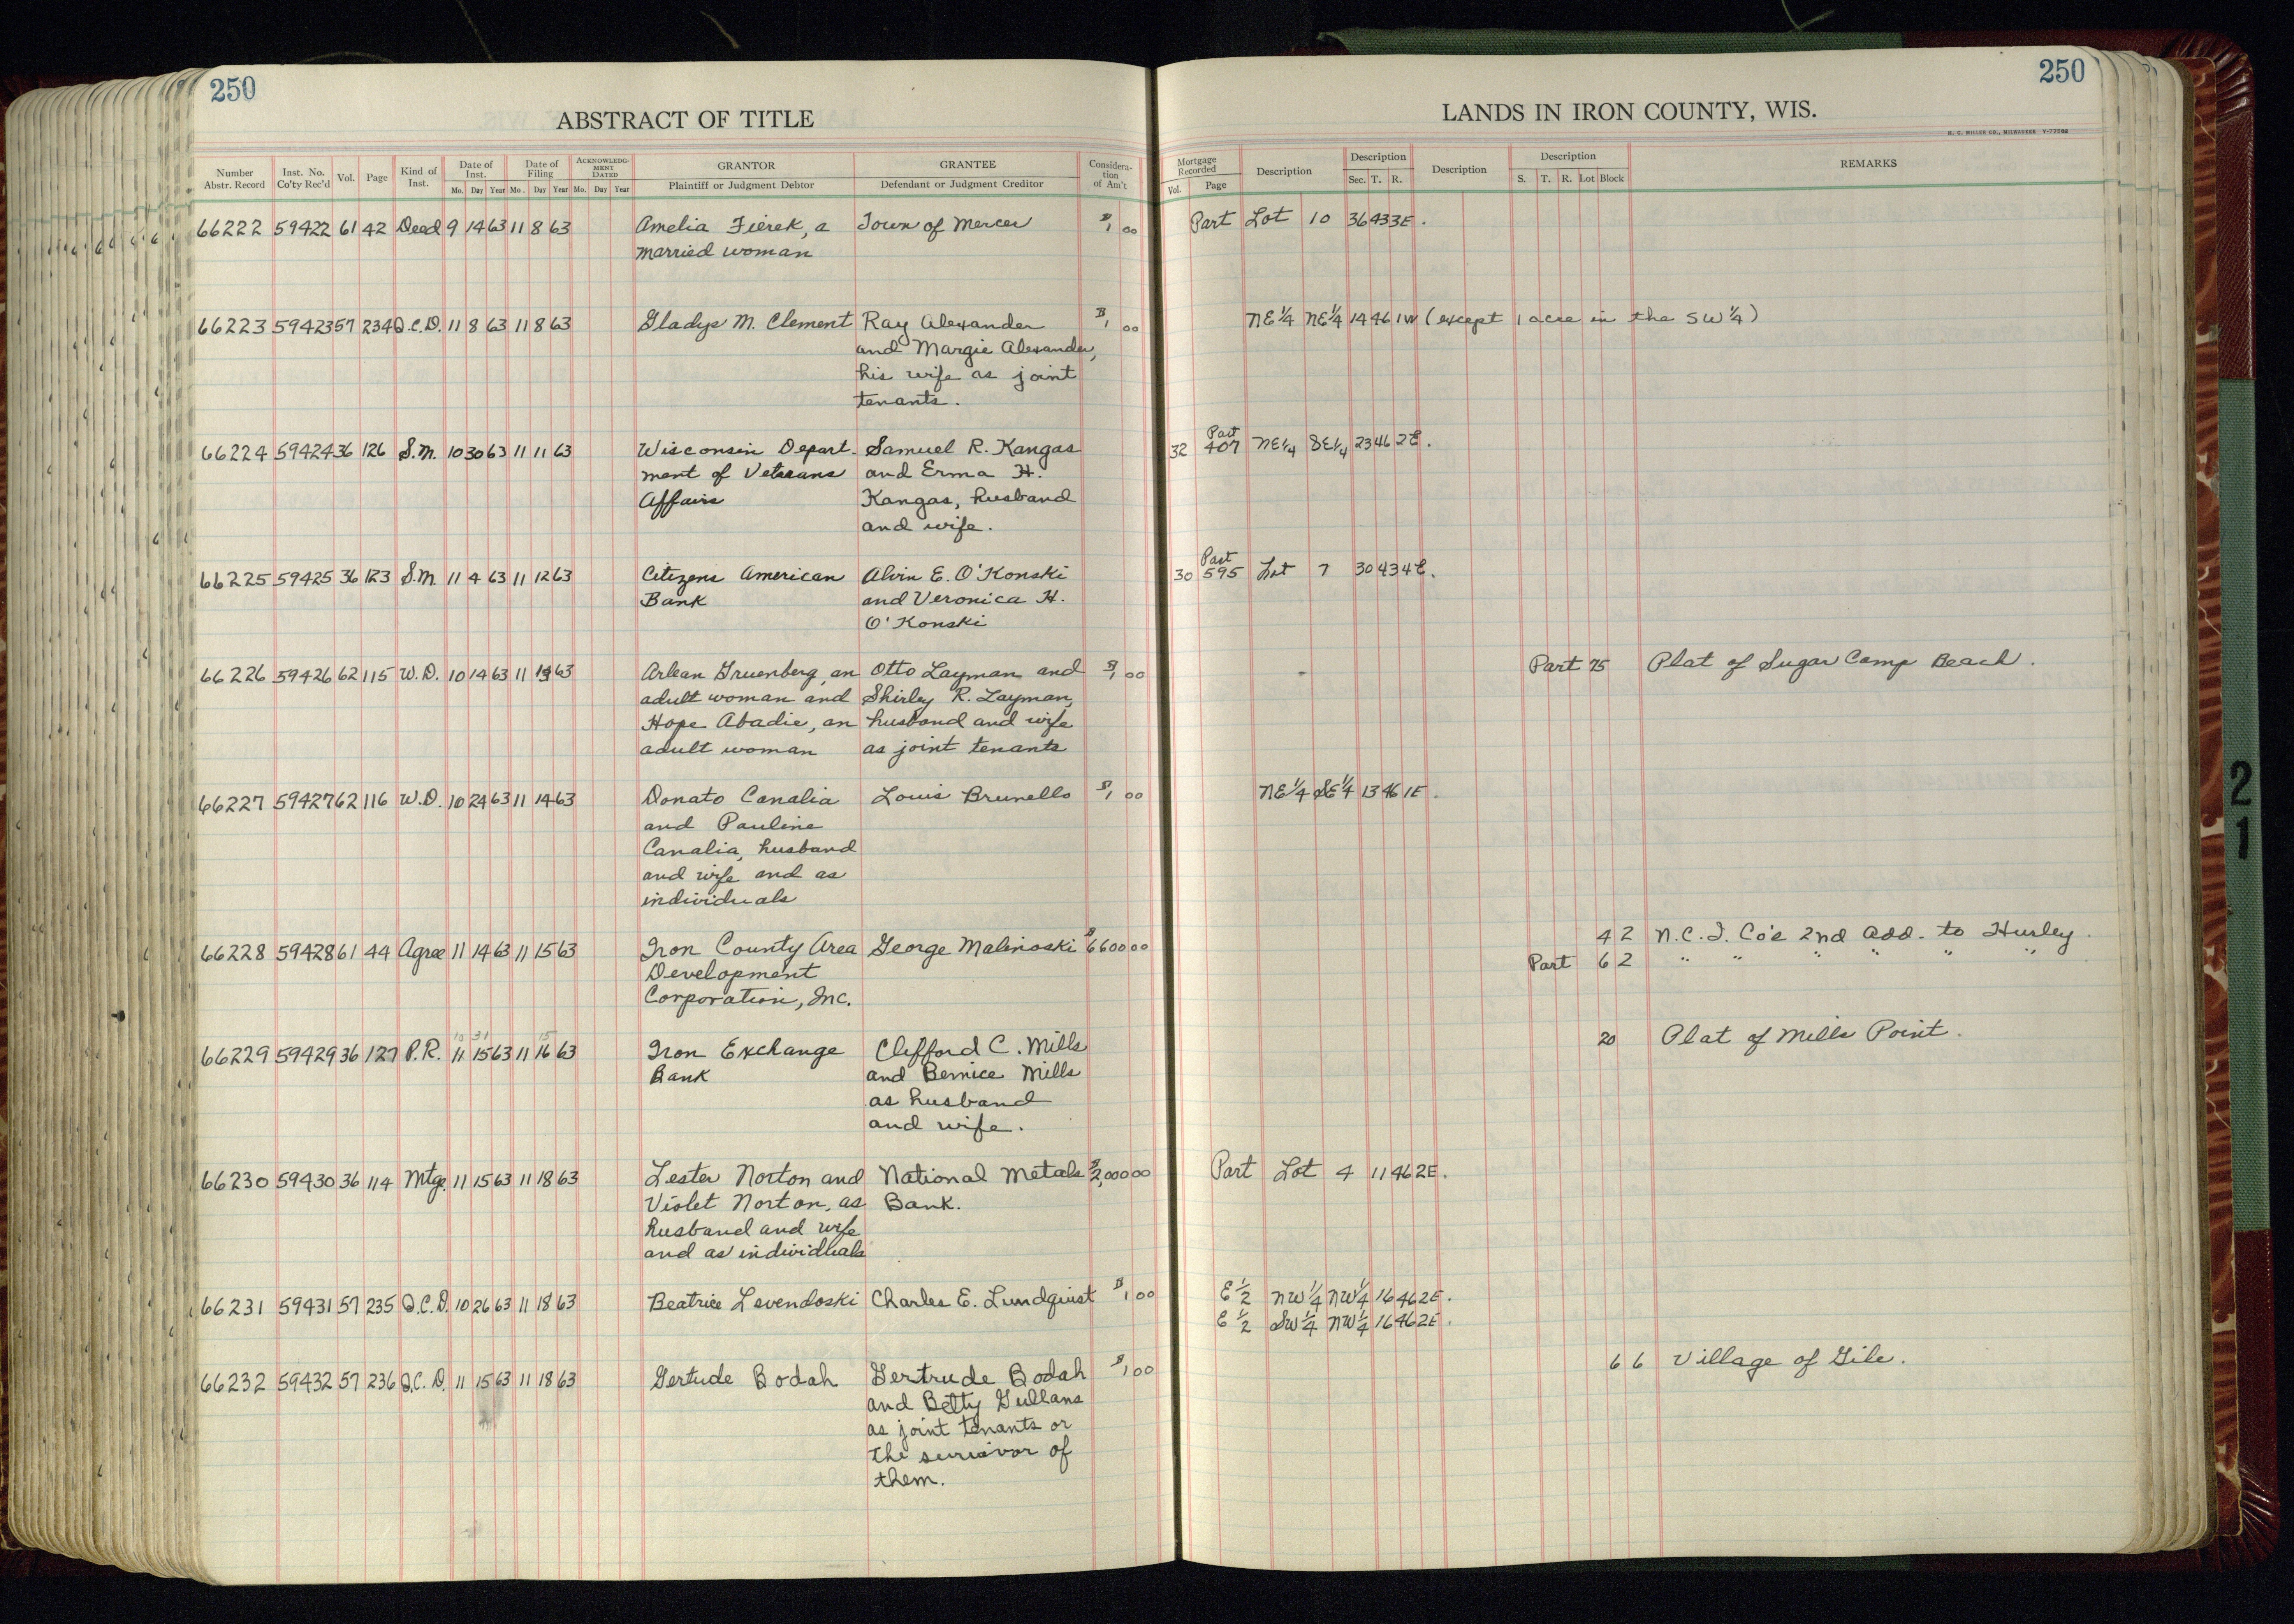 250
ABSTRACT OF TITLE
Number Abstr. Record Inst. No. Co'ty Rec'd Vol. Page Kind of Inst. Date of Inst. Mo. Day Year Date of Filing Mo. Day Year ACKNOWLEDGMENT DATED Mo. Day Year GRANTOR Plaintiff or Judgment Debtor GRANTEE Defendant or Judgment Creditor Consideration of Am't
66222 59422 61 42 Deed 9 14 63 11 8 63 Amelia Fierek, a Town of Mercer $1 00
married woman
66223 59423 57 234 Q.C.D. 11 8 63 11 8 63 Gladys M. Clement Ray Alexander $1 00
and Margie Alexander,
his wife as joint
tenants.
66224 59424 36 126 S.M. 10 30 63 11 11 63 Wisconsin Depart- Samuel R. Kangas
ment of Veterans and Erma H.
Affairs Kangas, husband
and wife.
66225 59425 36 123 S.M. 11 4 63 11 12 63 Citizens American Alvin E. O'Konski
Bank and Veronica H.
O'Konski
66226 59426 62 115 W.D. 10 14 63 11 63 Arlean Gruenberg, an Otto Layman and $1 00
adult woman and Shirley R. Layman,
Hope Abadie, an husband and wife
adult woman as joint tenants
66227 59427 62 116 W.D. 10 24 63 11 14 63 Donato Canalia Louis Brunello $1 00
and Pauline
Canalia, husband
and wife and as
individuals
66228 59428 61 44 Agree 11 14 63 11 15 63 Iron County Area George Malinoski $6600 00
Development
Corporation, Inc.
10 31 15
66229 59429 36 127 P.R. 11 15 63 11 16 63 Iron Exchange Clifford C. Mills
Bank and Bernice Mills
as husband
and wife.
66230 59430 36 114 Mtge. 11 15 63 11 18 63 Lester Norton and National Metals $2,000 00
Violet Norton, as Bank.
husband and wife
and as individuals
66231 59431 57 235 Q.C.D. 10 26 63 11 18 63 Beatrice Levendoski Charles E. Lundquist $1 00
66232 59432 57 236 Q.C.D. 11 15 63 11 18 63 Gertude Bodah Gertrude Bodah $1 00
and Betty Gullans
as joint tenants or
the survivor of
them.
250
LANDS IN IRON COUNTY, WIS.
H. C. MILLER CO., MILWAUKEE
Mortgage Recorded Vol. Page Description Description Sec. T. R. Description Description S. T. R. Lot Block REMARKS
Part Lot 10 36 43 3E.
NE¼ NE¼ 14 46 1W (except 1 acre in the SW¼)
Part
32 407 NE¼ SE¼ 23 46 2E.
Part
30 595 Lot 7 30 43 4E.
Part 75 Plat of Sugar Camp Beach.
NE¼ SE¼ 13 46 1E.
4 2 N.C.I. Co's 2nd Add. to Hurley.
Part 6 2 " " " " " "
20 Plat of Mills Point.
Part Lot 4 11 46 2E.
E½ NW¼ NW¼ 16 46 2E.
E½ SW¼ NW¼ 16 46 2E.
6 6 Village of Gile.
21